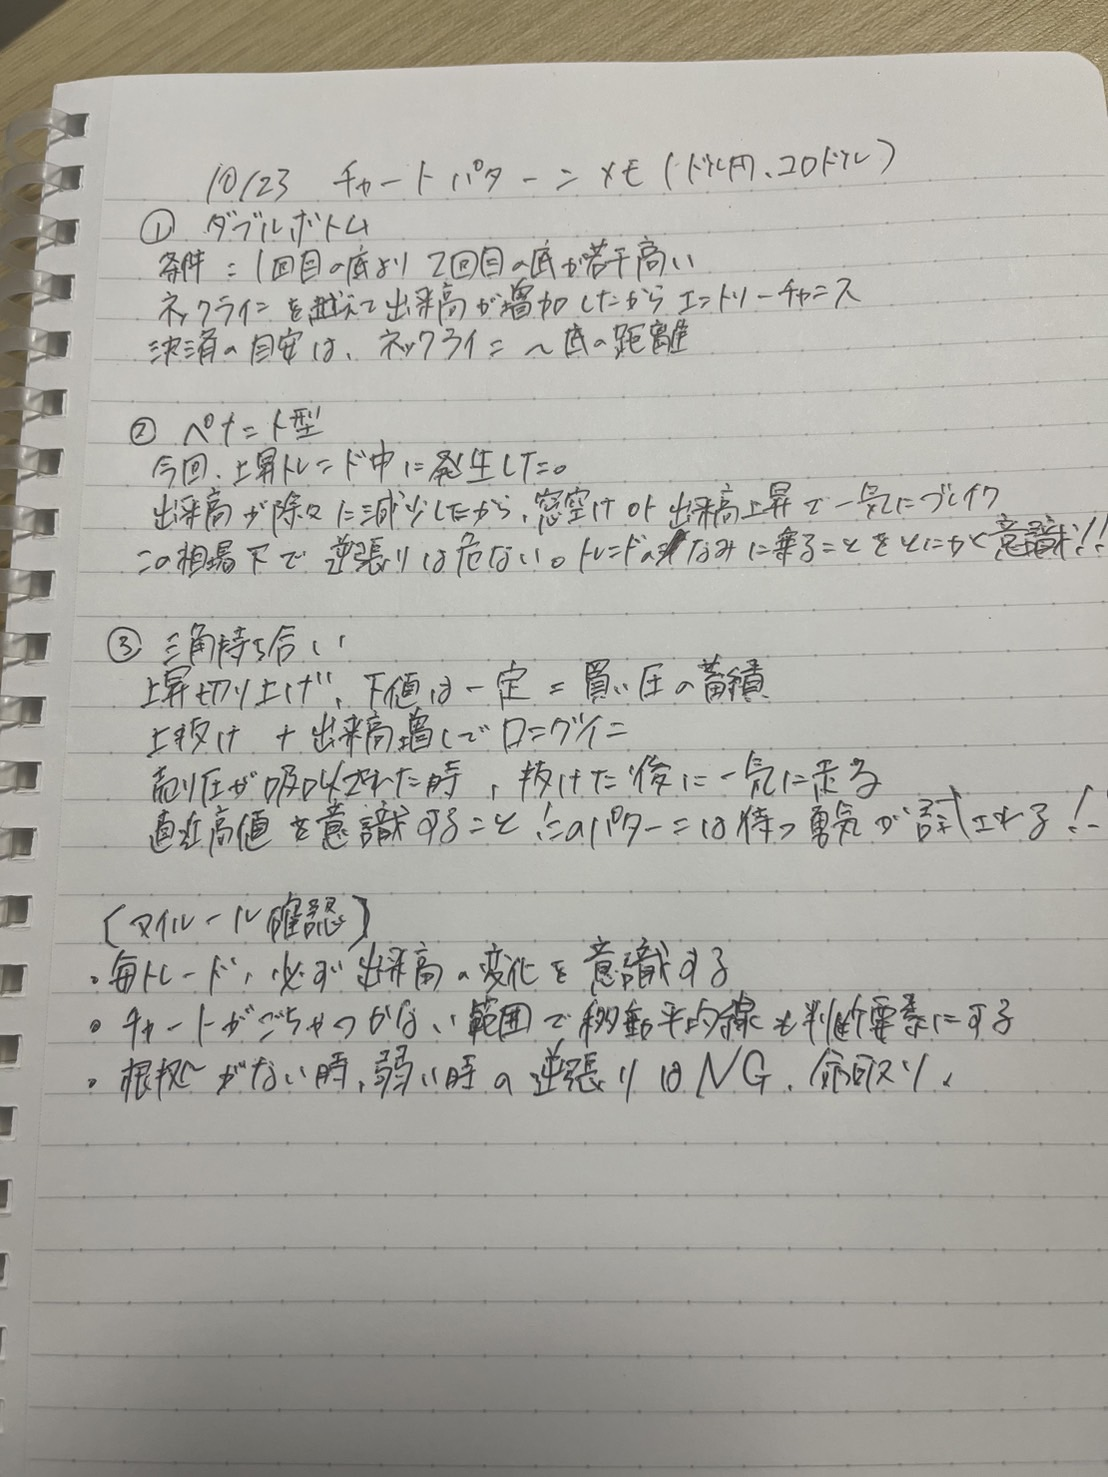 10/23 チャートパターンメモ(ドル円、ユロドル)
① ダブルボトム
条件:1回目の底より2回目の底が若干高い
ネックラインを越えて出来高が増加したからエントリーチャンス
決済の目安は、ネックライン〜底の距離
② ペナント型
今回、上昇トレンド中に発生した。
出来高が除々に減少したから、窓空け or 出来高上昇で一気にブレイク
この相場下で逆張りは危ない。トレンドのなみに乗ることをとにかく意識!!
③ 三角持ち合い
上昇切り上げ、下値は一定=買い圧の蓄積
上抜け + 出来高増しでロングイン
売り圧が吸収された時、抜けた後に一気に走る
直近高値を意識すること!このパターンは待つ勇気が試される!
[マイルール確認]
・毎トレード、必ず出来高の変化を意識する
・チャートがごちゃつかない範囲で移動平均線も判断要素にする
・根拠がない時、弱い時の逆張りはNG、